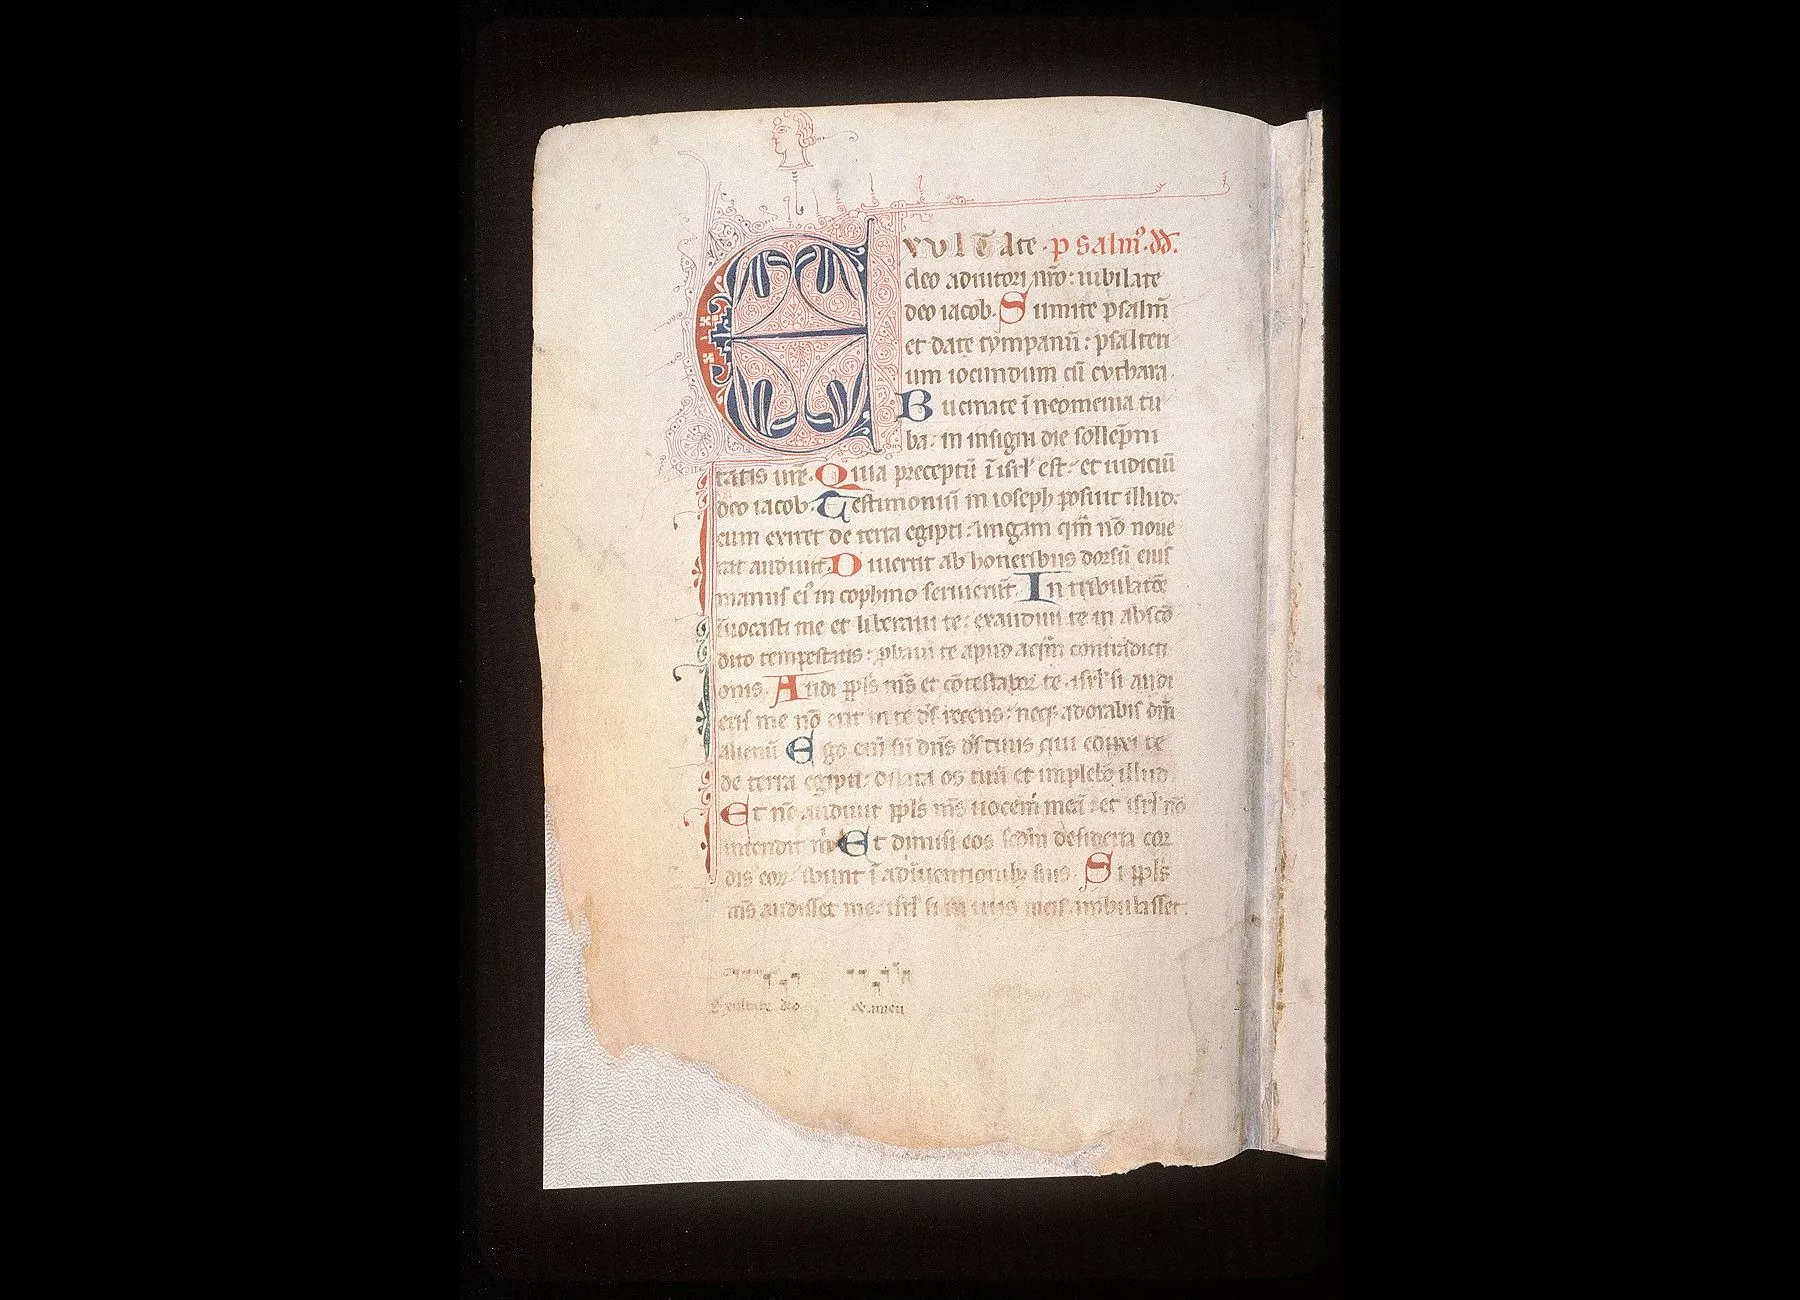 EXVLTate · psalm9 · dd.
deo adiutori nr̄o : iubilate
deo iacob. Sumite psalm̄
et date tympanū : psalteri
um iocundum cū cythara
Bucinate ī neomenia tu
ba : in insigni die sollēpni
tatis ur̄e. Quia preceptū ī isrl' est : et iudiciū
deo iacob. Testimoniū in ioseph posuit illud :
cum exiret de terra egipti : lingam qm̄ nō noue
rat audiuit. Diuertit ab honeribus dorsū eius
manus ei9 in cophino seruierūt. In tribulatōe
īuocasti me et liberaui te : exaudiui te in abscō
dito tempestatis : ꝓbaui te apud aq̄m contradicti
onis. Audi ppl's m̄s et cōtestabor te . isrl' si audi
eris me nō erit in te d's recens : neq3 adorabis dm̄
alienū Ego eni sū dn̄s d's tuus qui eduxi te
de terra egipti : dilata os tuū et implebo illud.
Et nō audiuit ppl's m̄s uocem meā : et isrl' nō
intendit m̄ Et dimisi eos scd̄m desideria cor
dis eor ibunt ī adiuuentionib3 suis. Si ppl's
m̄s audisset me : isrl' si in uiis meis ambulasset.
Exultate deo